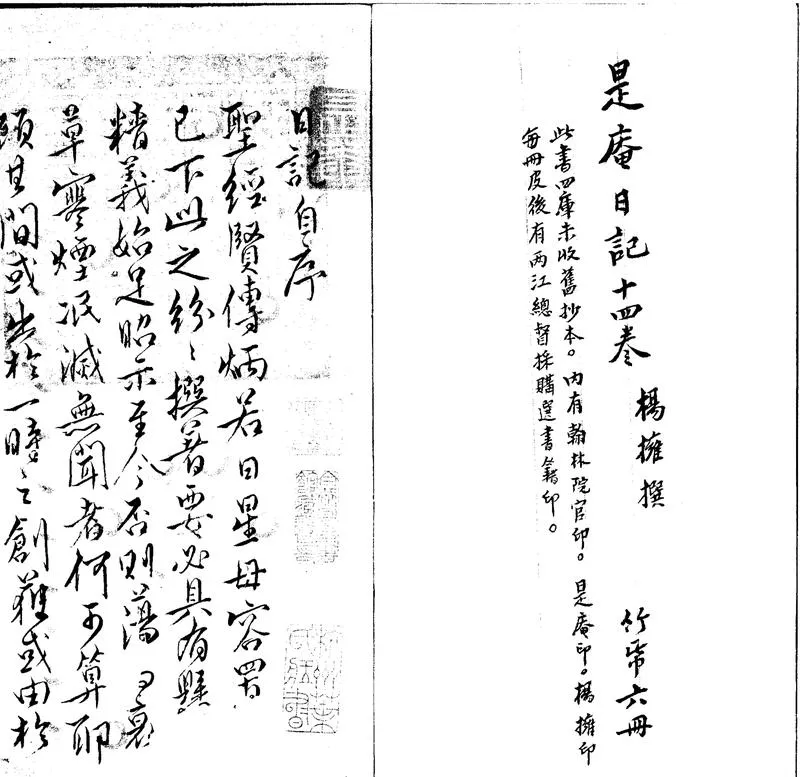 是庵日記十四卷 楊擁撰 竹帋六冊
此書四庫未收舊抄本。內有翰林院官印。是庵印。楊擁印
每冊皮後有两江總督採購選書籍印。
日記自序
聖經賢傳炳若日星毋容
已下此之紛〻撰著要必具有
精義始足昭示至今否則蕩
草寒煙泯滅無聞者何可算耶
顧其間或出於一時之創獲或由於